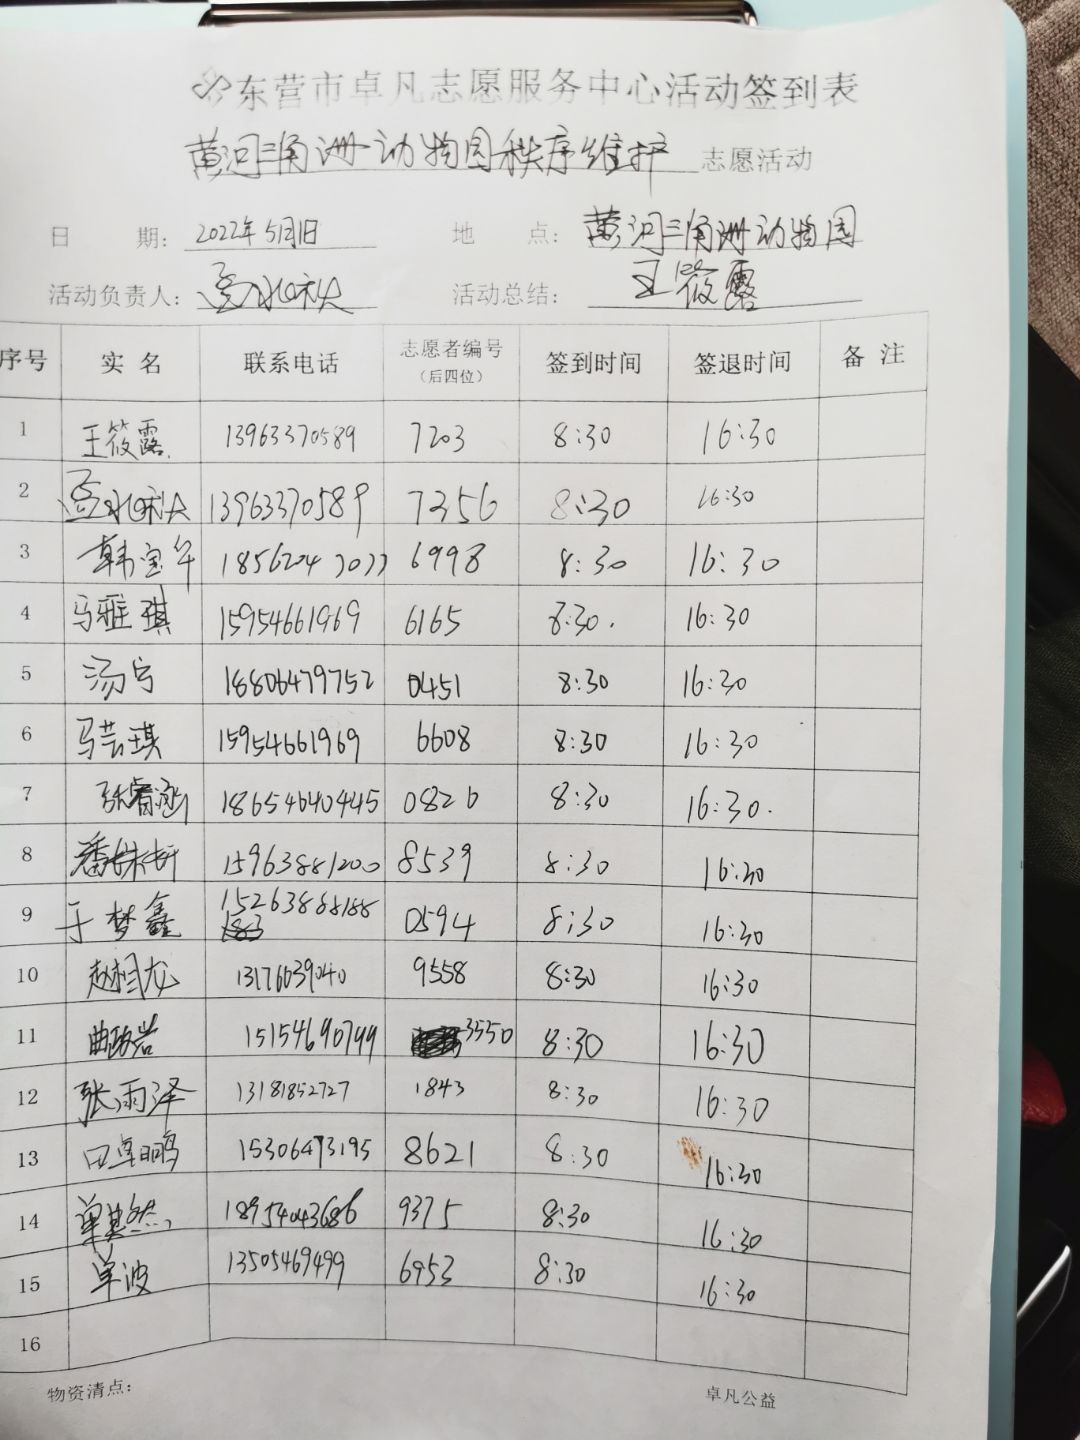 东营市卓凡志愿服务中心活动签到表
黄河三角洲动物园秩序维护 志愿活动
日 期: 2022年5月1日 地 点: 黄河三角洲动物园
活动负责人: 活动总结: 王筱露
序号 实 名 联系电话 志愿者编号(后四位) 签到时间 签退时间 备 注
1 王筱露 13963370589 7203 8:30 16:30
2 13963370589 7356 8:30 16:30
3 韩宝午 6998 8:30 16:30
4 马雅琪 15954661969 6165 8:30 16:30
5 汤宁 18806479752 0451 8:30 16:30
6 马芸琪 15954661969 6608 8:30 16:30
7 张睿涵 18654640445 0826 8:30 16:30
8 潘姝妍 15963881200 8539 8:30 16:30
9 于梦鑫 15263888188 0594 8:30 16:30
10 赵相龙 13176039040 9558 8:30 16:30
11 曲政岩 15154690799 3550 8:30 16:30
12 张雨泽 13181852727 1843 8:30 16:30
13 田卓鹏 15306473195 8621 8:30 16:30
14 单其然 18954043686 9375 8:30 16:30
15 单波 13505469499 6953 8:30 16:30
16
物资清点: 卓凡公益